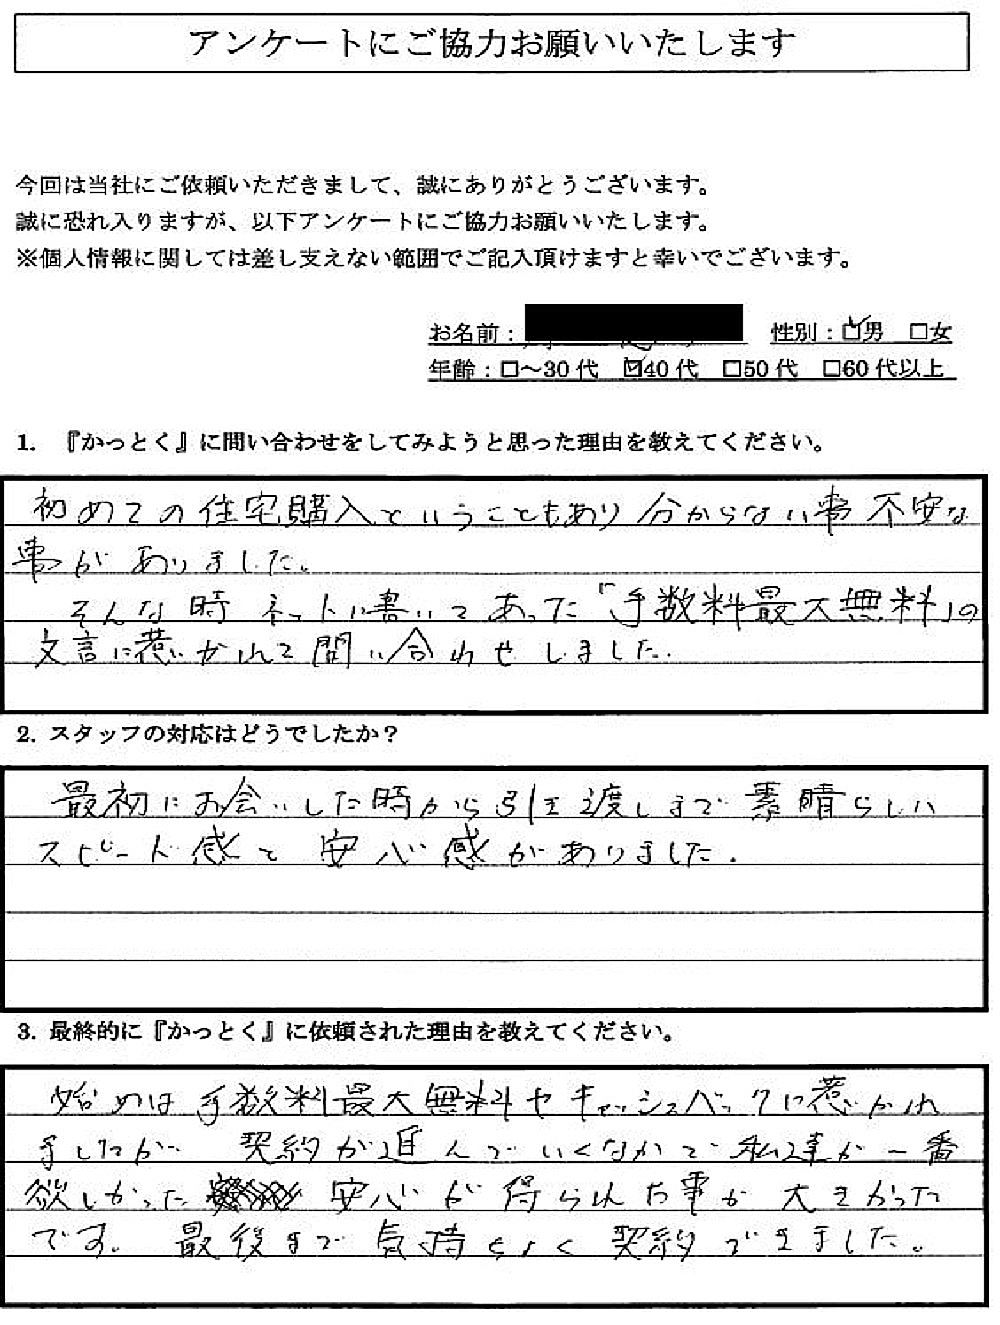 アンケートにご協力お願いいたします
今回は当社にご依頼いただきまして、誠にありがとうございます。
誠に恐れ入りますが、以下アンケートにご協力お願いいたします。
※個人情報に関しては差し支えない範囲でご記入頂けますと幸いでございます。
お名前： 性別：☑男 □女
年齢：□～30代 ☑40代 □50代 □60代以上
1. 『かっとく』に問い合わせをしてみようと思った理由を教えてください。
初めての住宅購入ということもあり分からない事不安な
事がありました。
そんな時ネットに書いてあった「手数料最大無料」の
文言に惹いかれて問い合わせしました。
2. スタッフの対応はどうでしたか？
最初にお会いした時から引き渡しまで素晴らしい
スピード感と安心感がありました。
3. 最終的に『かっとく』に依頼された理由を教えてください。
始めは手数料最大無料やキャッシュバックに惹いかれ
ましたが 契約が進んでいくなかで私達が一番
欲しかった 安心が得られた事が大きかった
です。最後まで気持ちよく契約できました。